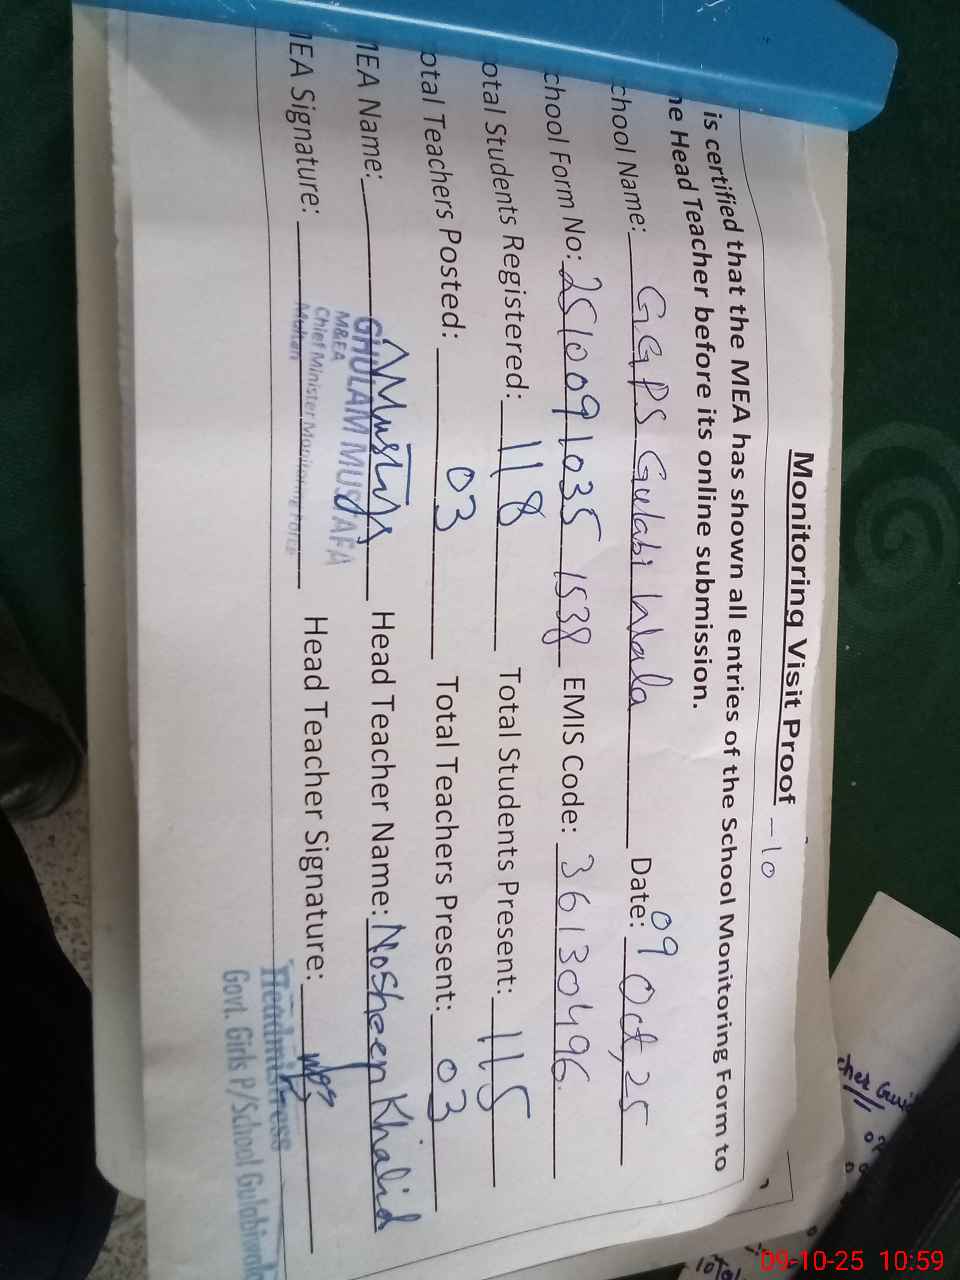 Monitoring Visit Proof -10
is certified that the MEA has shown all entries of the School Monitoring Form to
he Head Teacher before its online submission.
chool Name: GGPS Gulabi Wala Date: 09 Oct, 25
chool Form No: 251009103515 38 EMIS Code: 36130496
otal Students Registered: 118 Total Students Present: 115
otal Teachers Posted: 03 Total Teachers Present: 03
MEA Name: Head Teacher Name: Nosheen Khalid
GHULAM MUSTAFA
M&EA
Chief Minister Monitoring Force
Multan
MEA Signature: Head Teacher Signature:
Headmistress
Govt. Girls P/School Gulabiwala
09-10-25 10:59